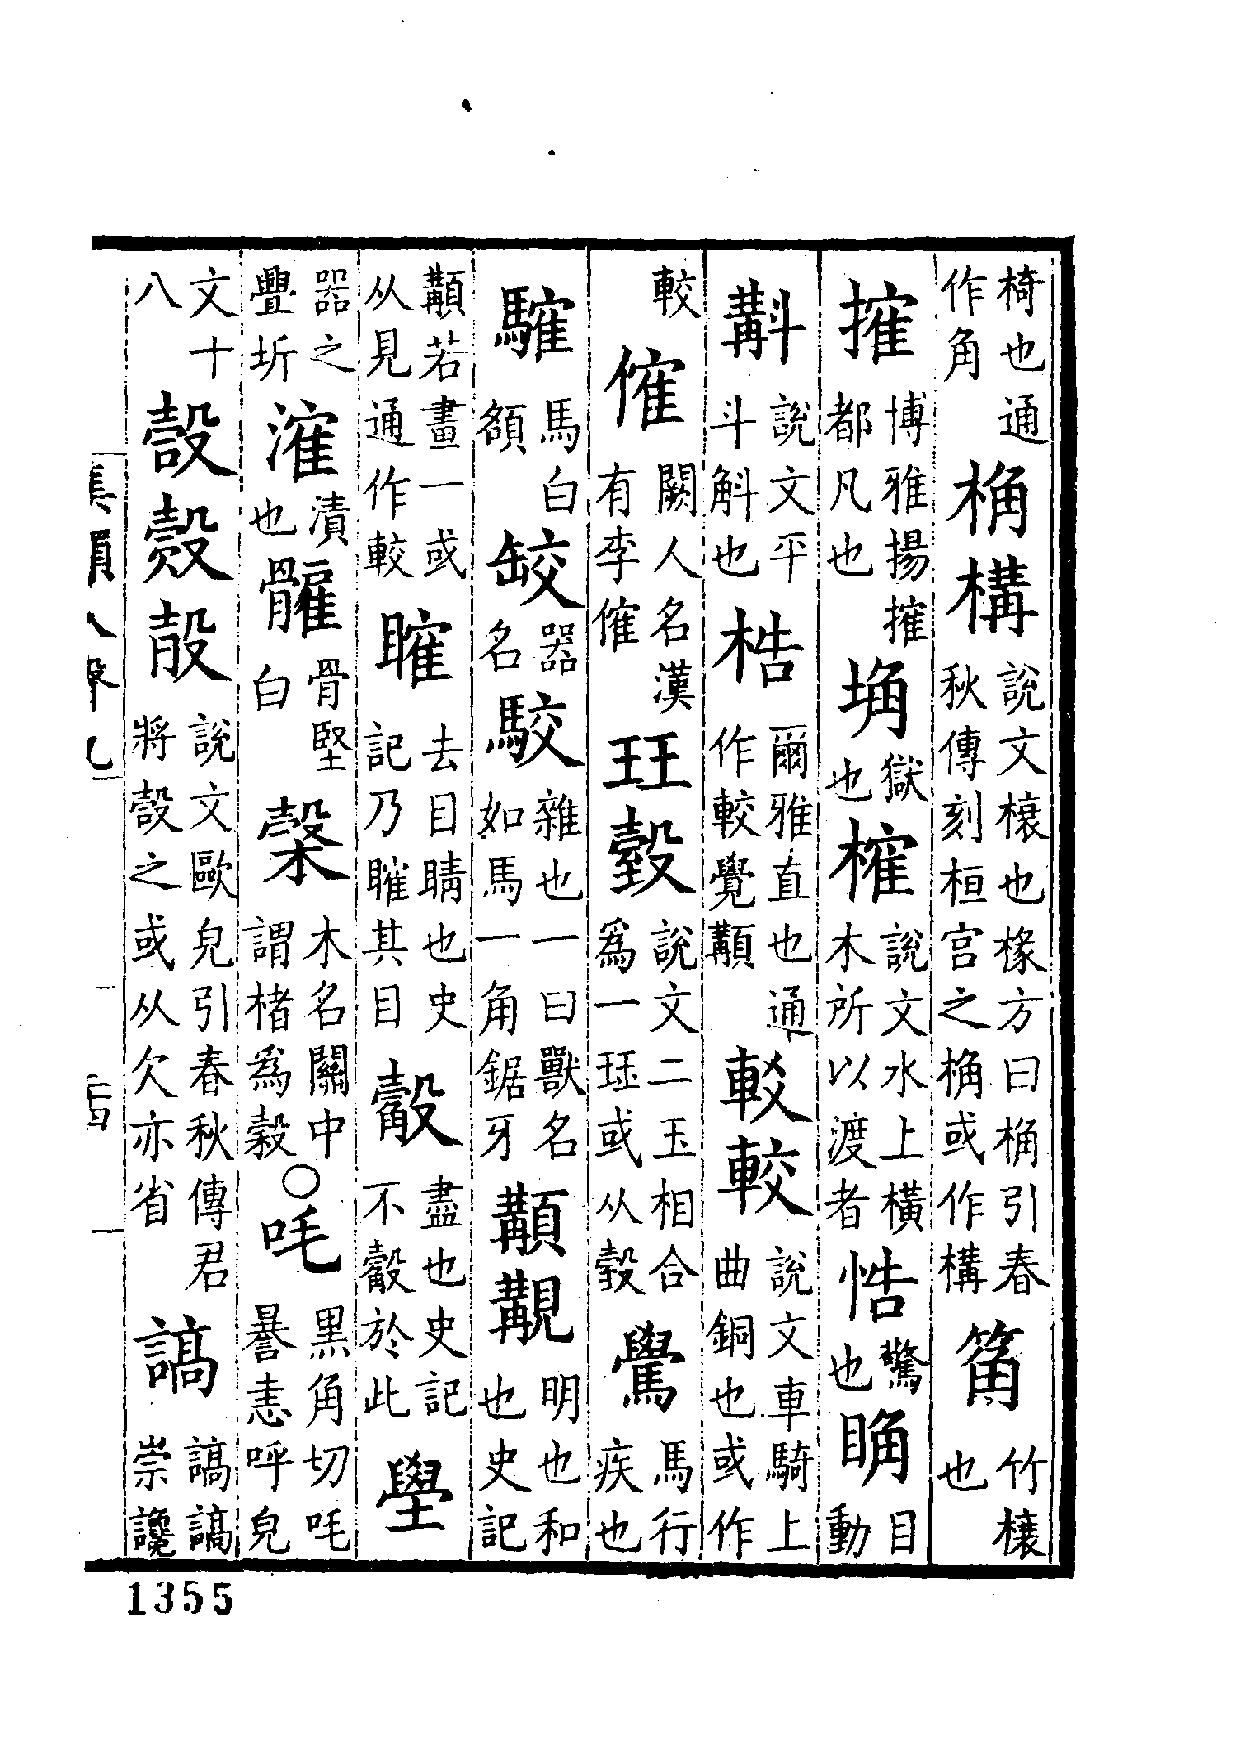 椅也通作角桷構說文榱也椽方曰桷引春秋傳刻桓宮之桷或作構䇶竹榱也
搉博雅揚搉都凡也埆獄也榷說文水上橫木所以渡者㤍驚也䀩目動
斠說文平斗斛也梏爾雅直也通作較覺顜較較說文車騎上曲銅也或作
較傕闕人名漢有李傕玨瑴說文二玉相合爲一玨或从瑴鷽馬行疾也
騅馬白額䍊器名駮雜也一曰獸名如馬一角鋸牙顜覯明也和也史記
顜若畫一或从見通作較㿥去目睛也史記乃㿥其目觳盡也史記不觳於此壆
器之璺坼漼漬也髉骨堅白㮤木名關中謂楮爲榖○吒黑角切吒謈恚呼皃
文十八㱿㱿㱿說文歐皃引春秋傳君將㱿之或从欠亦省謞謞謞崇讒
集韻入聲九
1355